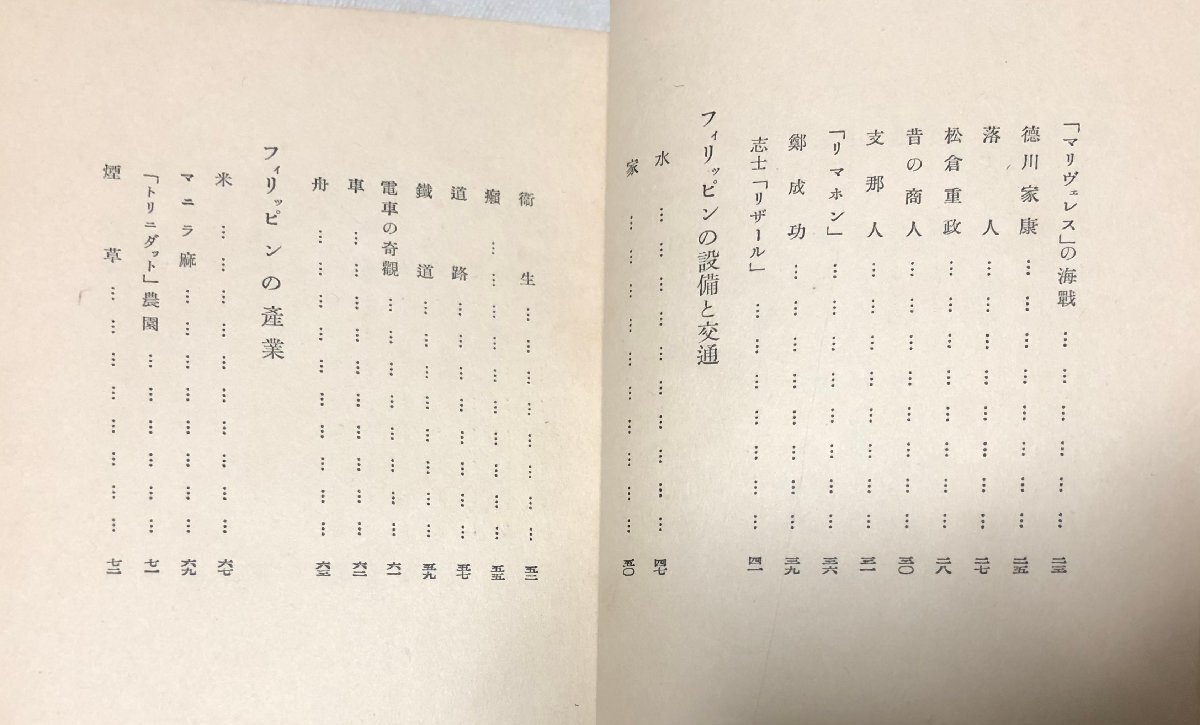 「マリヴェレス」の海戰 … … … … … … 二三
德川家康 … … … … … … … 二五
落人 … … … … … … … 二七
松倉重政 … … … … … … … 二八
昔の商人 … … … … … … … 三〇
支那人 … … … … … … … 三一
「リマホン」 … … … … … … … 三六
鄭成功 … … … … … … … 三九
志士「リザール」 … … … … … … 四一
フィリッピンの設備と交通
水 … … … … … … … … … 四七
家 … … … … … … … … … 五〇
衞生 … … … … … … … 五三
癩 … … … … … … … … 五五
道路 … … … … … … … 五七
鐵道 … … … … … … … 五九
電車の奇觀 … … … … … … 六一
車 … … … … … … … … 六二
舟 … … … … … … … … 六三
フィリッピンの產業
米 … … … … … … … … 六七
マニラ麻 … … … … … … … 六九
「トリニダット」農園 … … … … … 七一
煙草 … … … … … … … 七二